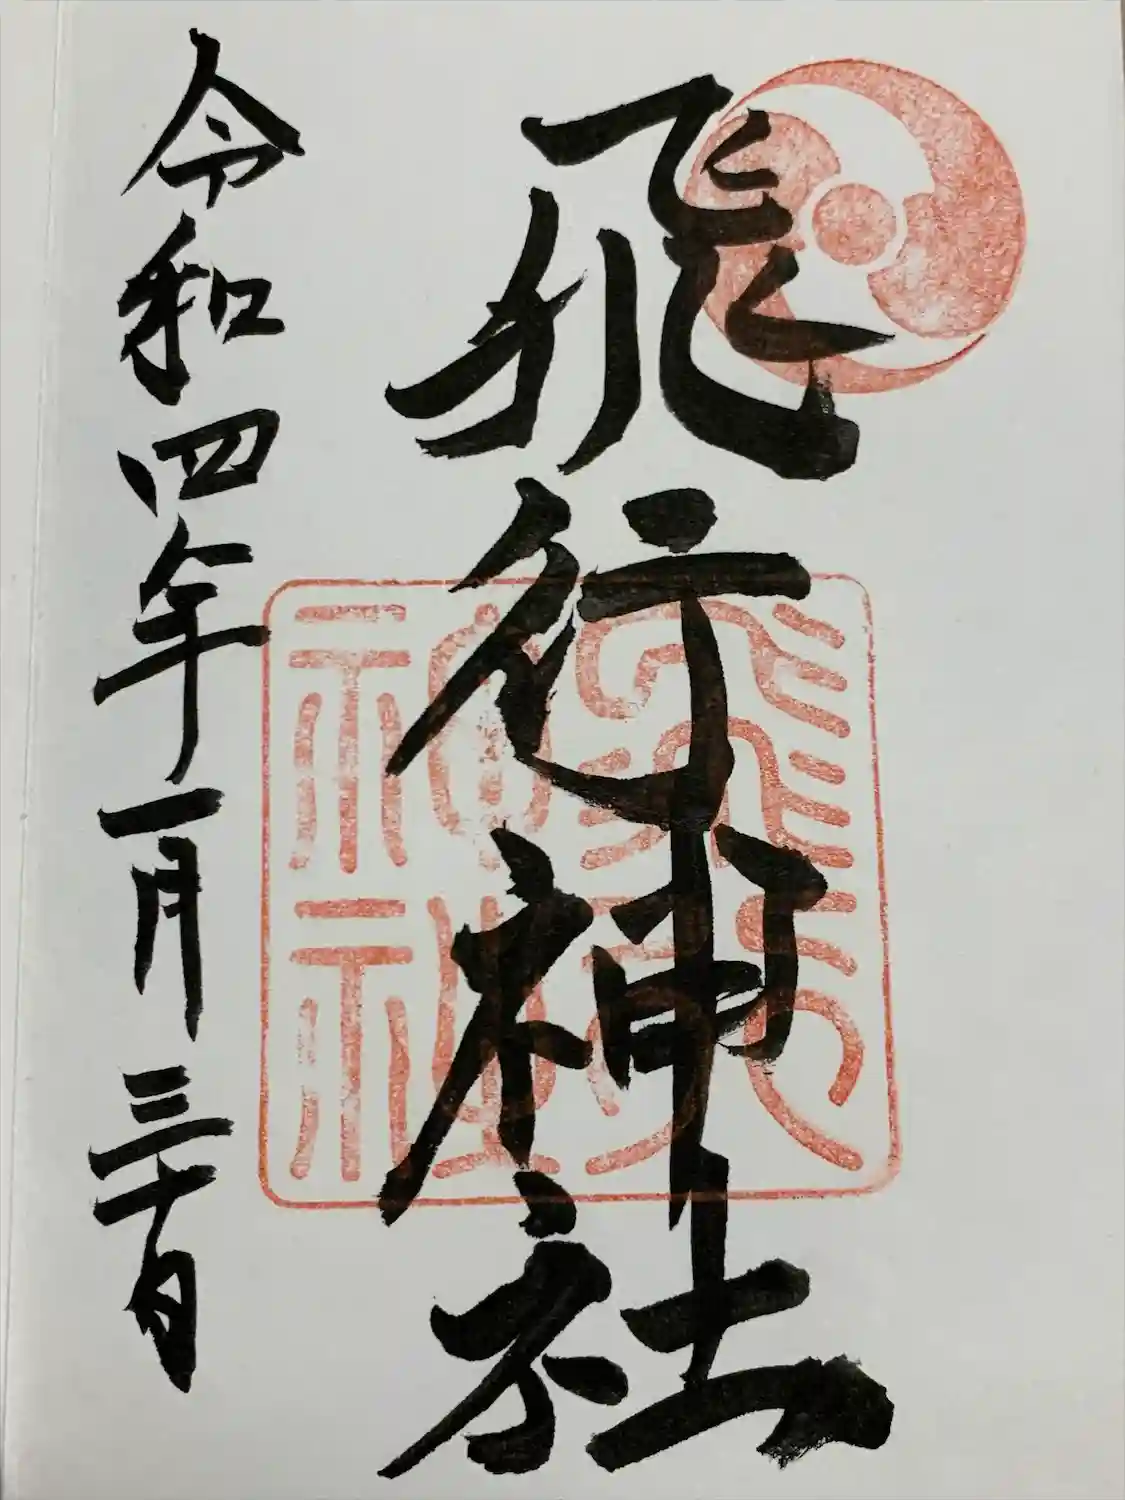 飛行神社
令和四年一月三十日
飛行神社